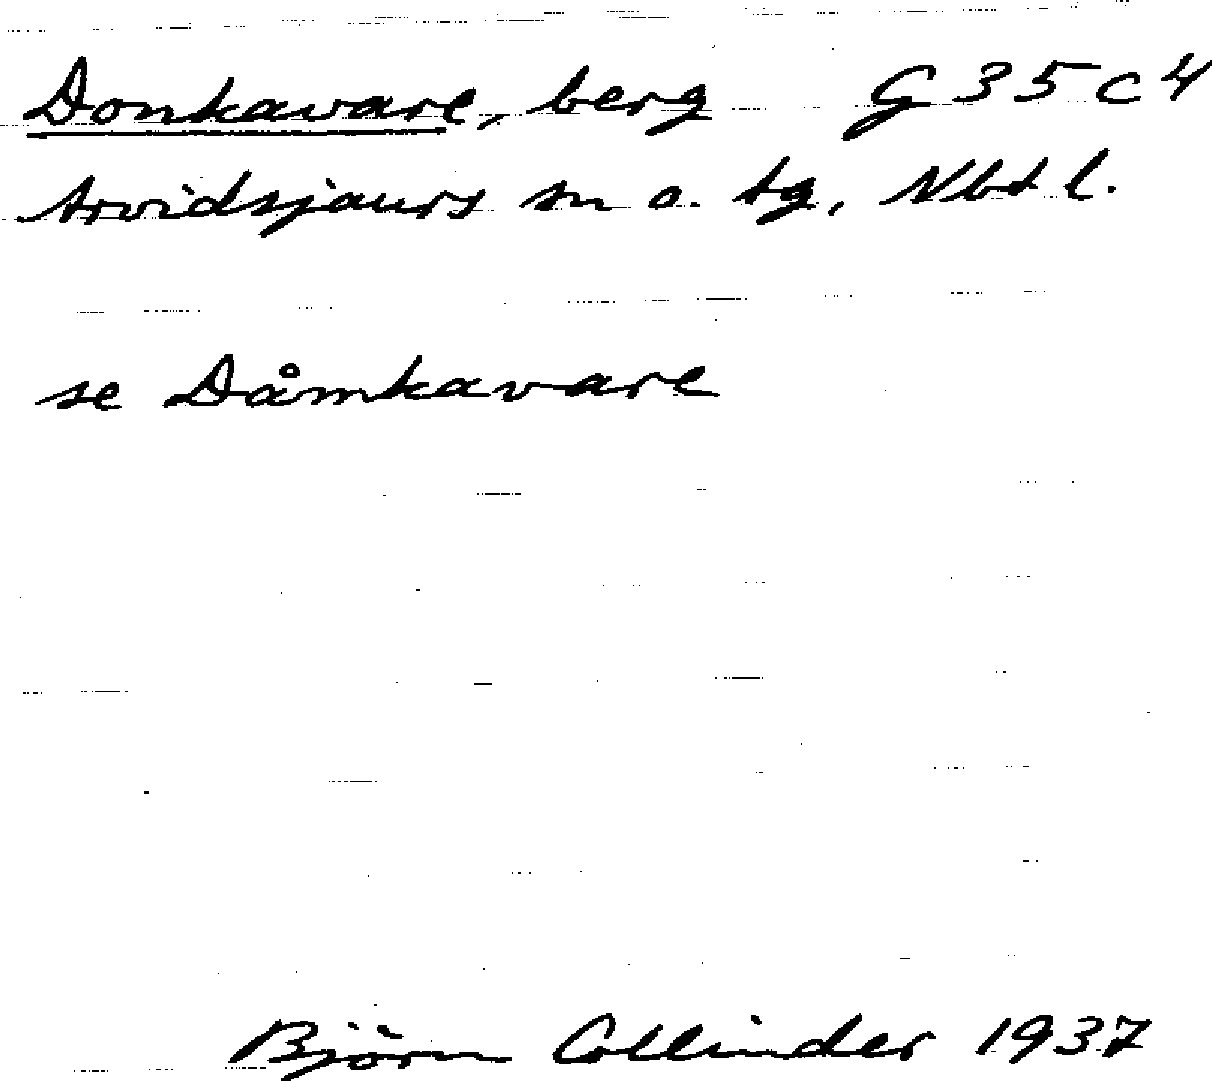 Donkavare, berg G 35 c 4
Arvidsjaurs sn o. tg, Nbtl.
se Dåmkavare
Björn Collinder 1937